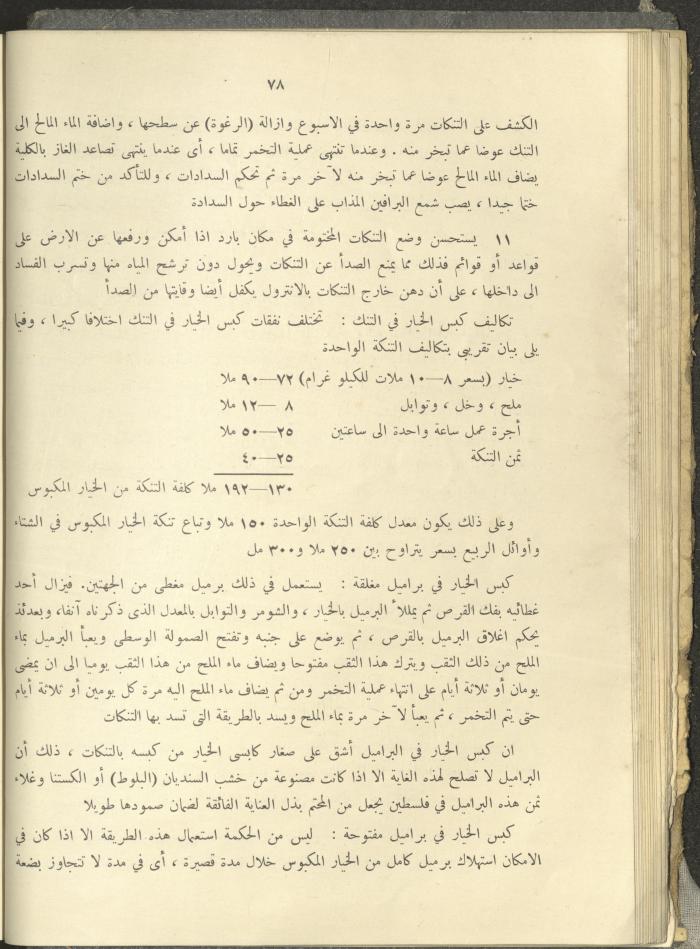 ٧٨
الكشف على التنكات مرة واحدة في الاسبوع وازالة (الرغوة) عن سطحها ، واضافة الماء المالح الى
التنك عوضا عما تبخر منه . وعندما تنتهى عملية التخمر تماما ، أى عندما ينتهى تصاعد الغاز بالكلية
يضاف الماء المالح عوضا عما تبخر منه لآخر مرة ثم تحكم السدادات ، وللتأكد من ختم السدادات
ختما جيدا ، يصب شمع البرافين المذاب على الغطاء حول السدادة
١١ يستحسن وضع التنكات المختومة في مكان بارد اذا أمكن ورفعها عن الارض على
قواعد أو قوائم فذلك مما يمنع الصدأ عن التنكات ويحول دون ترشح المياه منها وتسرب الفساد
الى داخلها ، على أن دهن خارج التنكات بالانترول يكفل أيضا وقايتها من الصدأ
تكاليف كبس الخيار في التنك : تختلف نفقات كبس الخيار في التنك اختلافا كبيرا ، وفيما
يلى بيان تقريبى بتكاليف التنكة الواحدة
خيار (بسعر ٨—١٠ ملات للكيلو غرام) ٧٢—٩٠ ملا
ملح ، وخل ، وتوابل ٨ —١٢ ملا
أجرة عمل ساعة واحدة الى ساعتين ٢٥—٥٠ ملا
ثمن التنكة ٢٥—٤٠
١٣٠—١٩٢ ملا كلفة التنكة من الخيار المكبوس
وعلى ذلك يكون معدل كلفة التنكة الواحدة ١٥٠ ملا وتباع تنكة الخيار المكبوس في الشتاء
وأوائل الربيع بسعر يتراوح بين ٢٥٠ ملا و٣٠٠ مل
كبس الخيار في براميل مغلقة : يستعمل في ذلك برميل مغطى من الجهتين. فيزال أحد
غطائيه بفك القرص ثم يملأ البرميل بالخيار ، والشومر والتوابل بالمعدل الذى ذكرناه آنفا، وبعدئذ
يحكم اغلاق البرميل بالقرص ، ثم يوضع على جنبه وتفتح الصمولة الوسطى ويعبأ البرميل بماء
الملح من ذلك الثقب ويترك هذا الثقب مفتوحا ويضاف ماء الملح من هذا الثقب يوميا الى ان يمضى
يومان أو ثلاثة أيام على انتهاء عملية التخمر ومن ثم يضاف ماء الملح اليه مرة كل يومين أو ثلاثة أيام
حتى يتم التخمر ، ثم يعبأ لآخر مرة بماء الملح ويسد بالطريقة التى تسد بها التنكات
ان كبس الخيار في البراميل أشق على صغار كابسى الخيار من كبسه بالتنكات ، ذلك أن
البراميل لا تصلح لهذه الغاية الا اذا كانت مصنوعة من خشب السنديان (البلوط) أو الكستنا وغلاء
ثمن هذه البراميل في فلسطين يجعل من المحتم بذل العناية الفائقة لضمان صمودها طويلا
كبس الخيار في براميل مفتوحة : ليس من الحكمة استعمال هذه الطريقة الا اذا كان في
الامكان استهلاك برميل كامل من الخيار المكبوس خلال مدة قصيرة ، أى في مدة لا تتجاوز بضعة